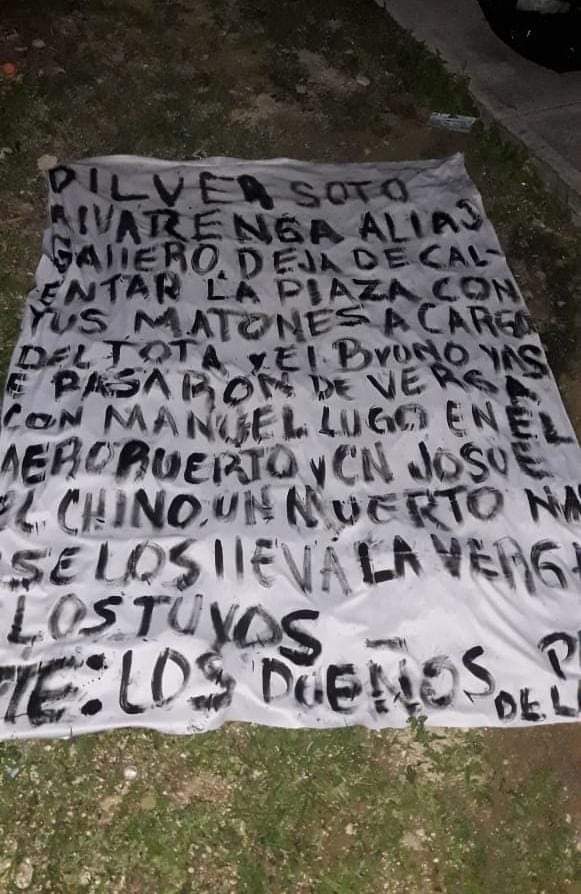 DILVER SOTO
RIVARENGA ALIAS
GALLERO. DEJA DE CAL-
ENTAR LA PLAZA CON
TUS MATONES A CARGO
DEL TOTA Y EL BRUNO YAS
E PASARON DE VERGA
CON MANUEL LUGO EN EL
AEROPUERTO Y CN JOSUE
EL CHINO. UN MUERTO
SE LOS LLEVA LA VERGA
LOS TUYOS
ATTE: LOS DUEÑOS
DE LA